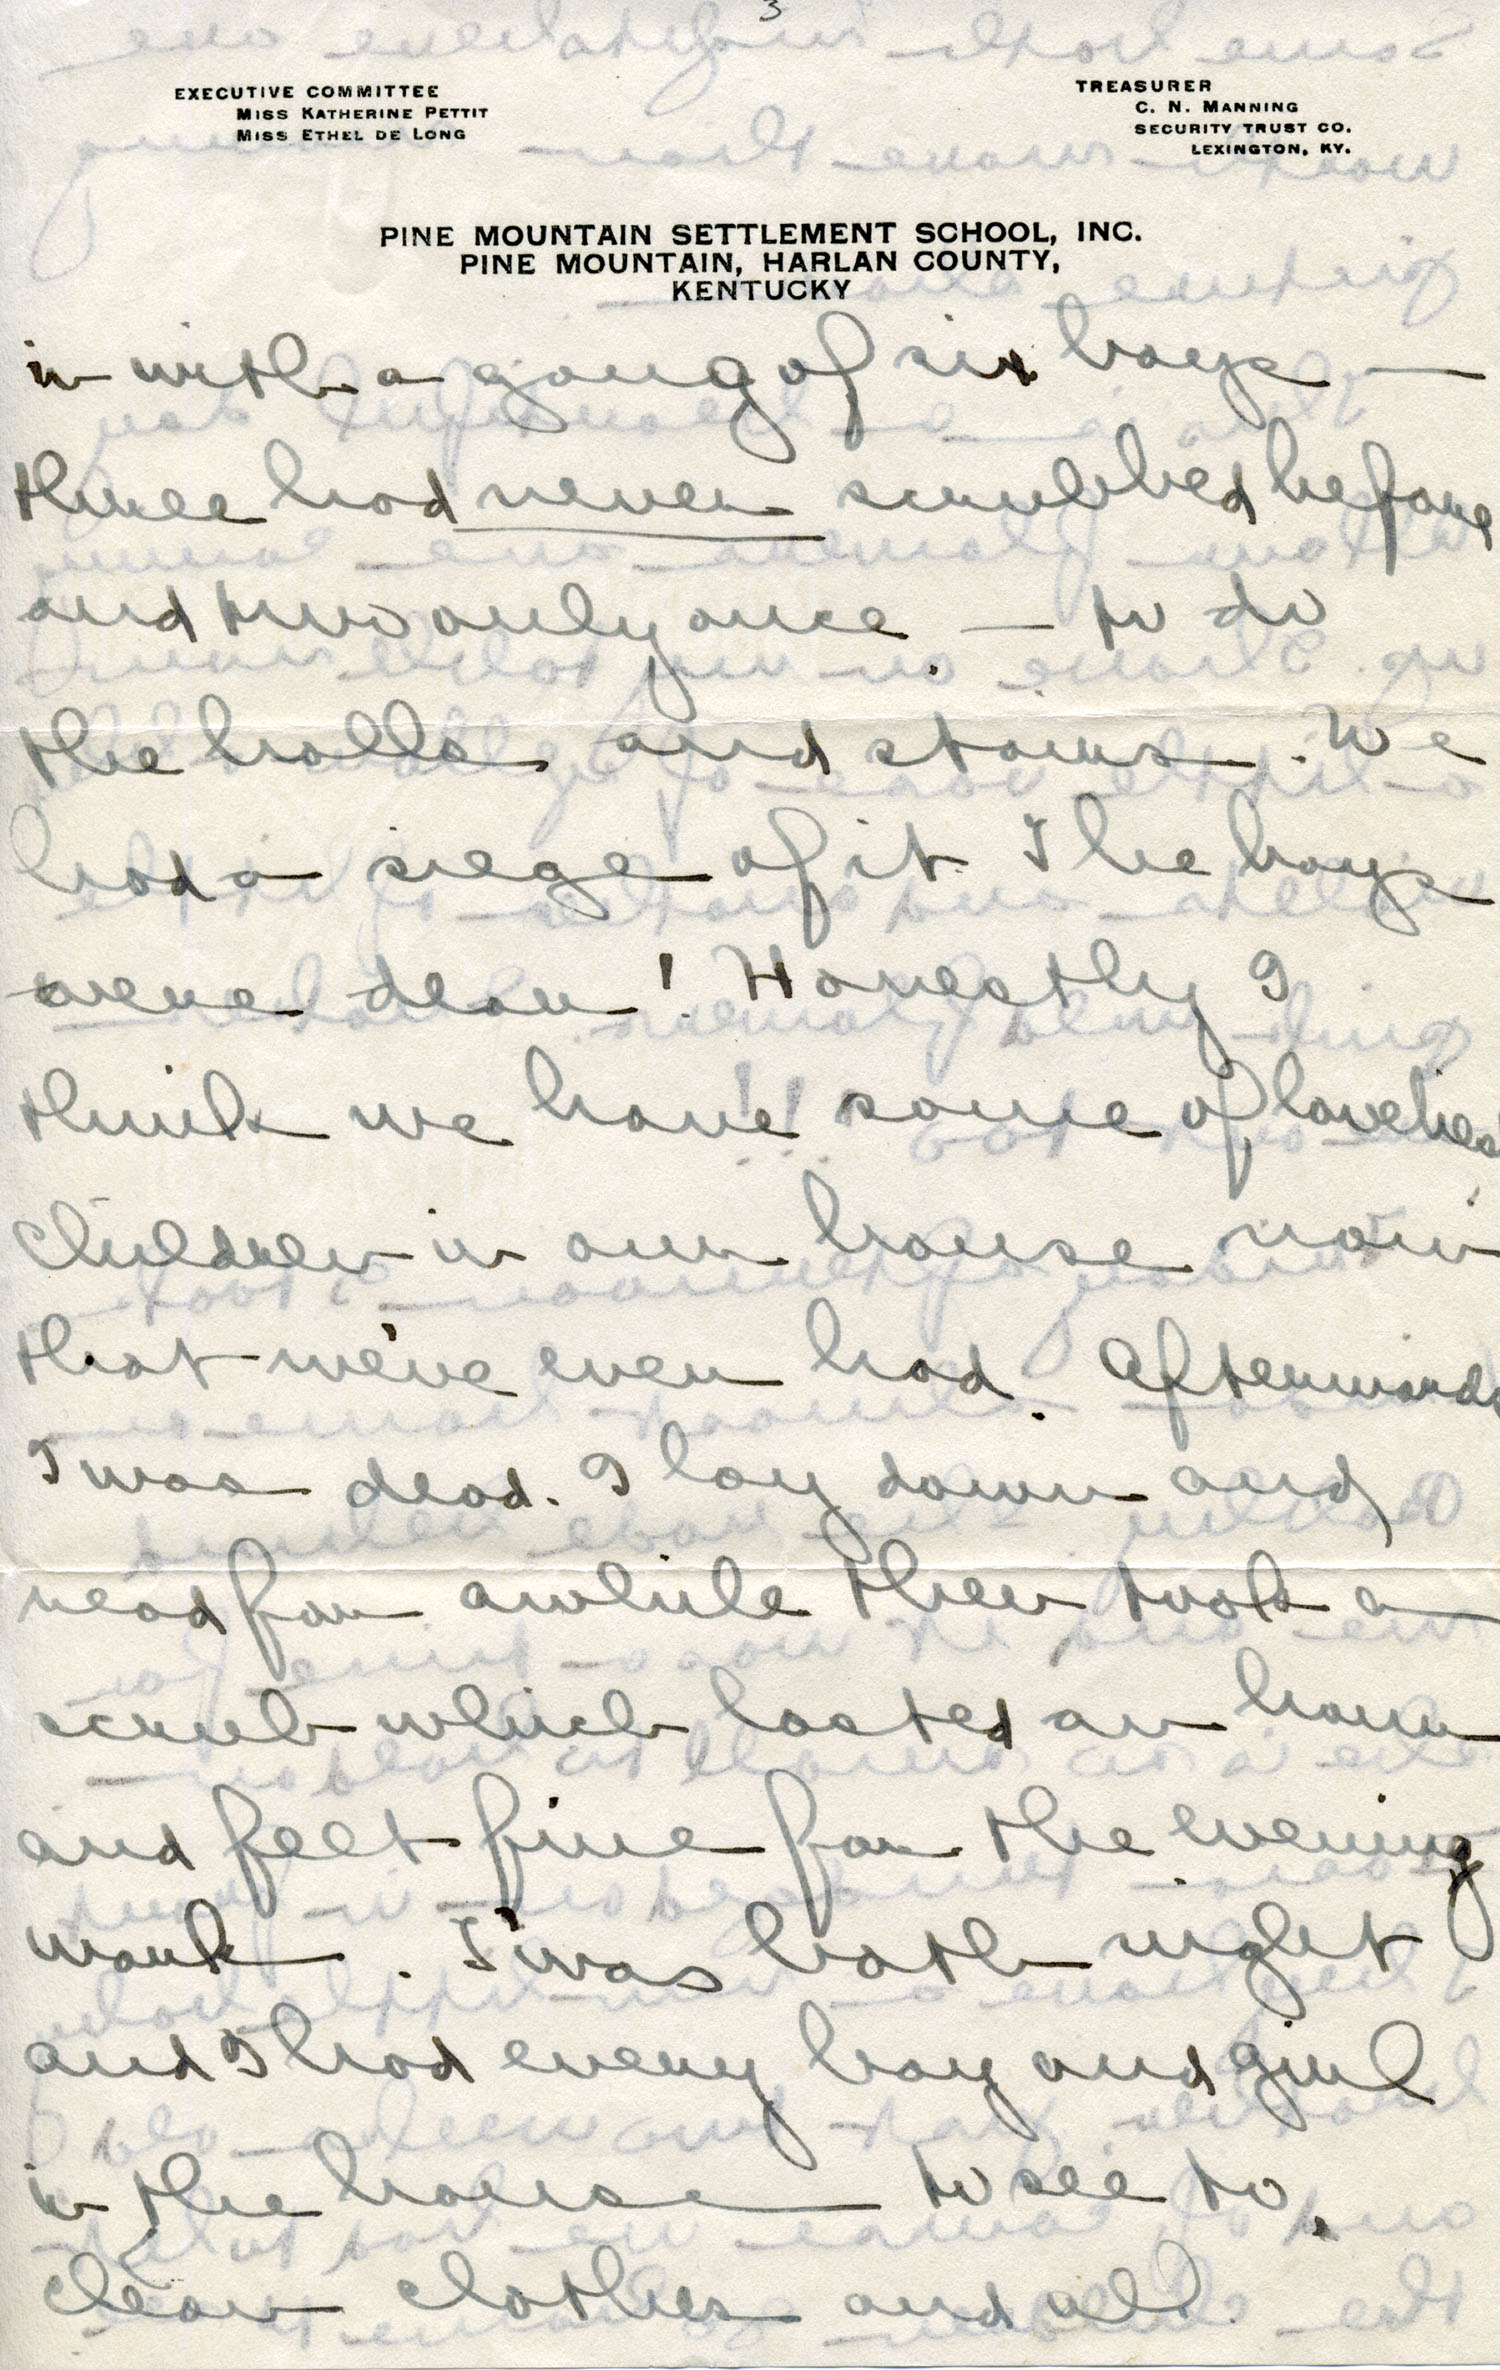 3
EXECUTIVE COMMITTEE
MISS KATHERINE PETTIT
MISS ETHEL DE LONG
TREASURER
C. N. MANNING
SECURITY TRUST CO.
LEXINGTON, KY.
PINE MOUNTAIN SETTLEMENT SCHOOL, INC.
PINE MOUNTAIN, HARLAN COUNTY,
KENTUCKY
in with a gang of six boys —
three had never scrubbed before
and two only once — to do
the halls and stairs. We
had a siege of it. The boys
were dear! Honestly I
think we have some of loveliest
children in our house now
that we've ever had. Afterwards
I was dead. I lay down and
read for awhile then took a
scrub which lasted an hour
and felt fine for the evening
work. T'was bath night
and I had every boy and girl
in the house — to see to,
clean clothes and all.